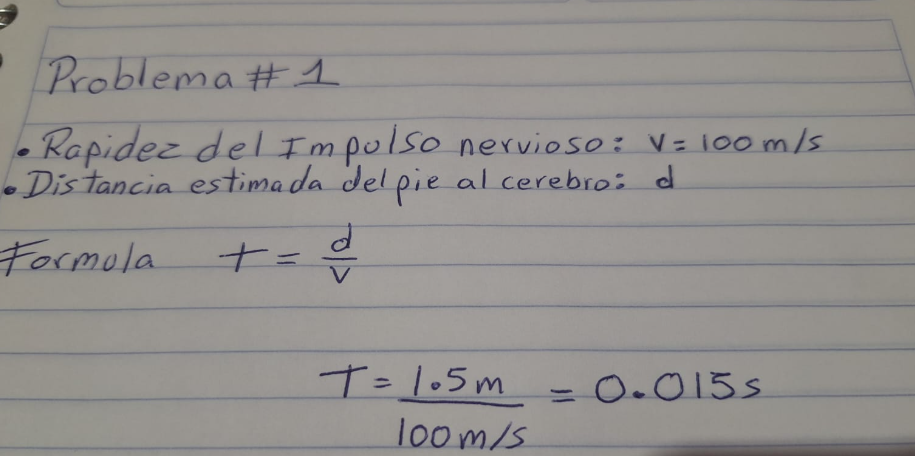 Problema # 1
• Rapidez del Impulso nervioso: v = 100 m/s
• Distancia estimada del pie al cerebro: d
Formula t = d/v
T = 1.5m/100m/s = 0.015s